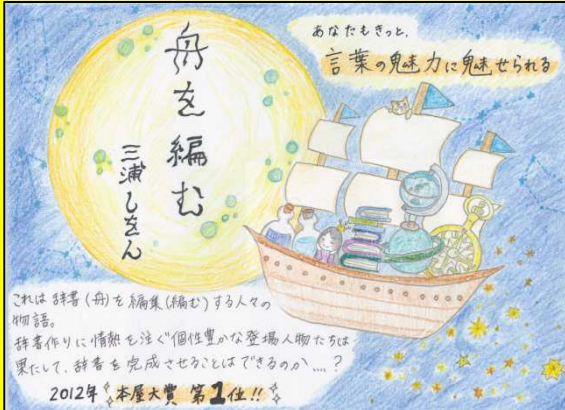 舟を編む
三浦しをん
あなたもきっと、
言葉の魅力に魅せられる
これは辞書(舟)を編集(編む)する人々の
物語。
辞書作りに情熱を注ぐ個性豊かな登場人物たちは
果たして、辞書を完成させることはできるのか....?
2012年 本屋大賞 第1位!!